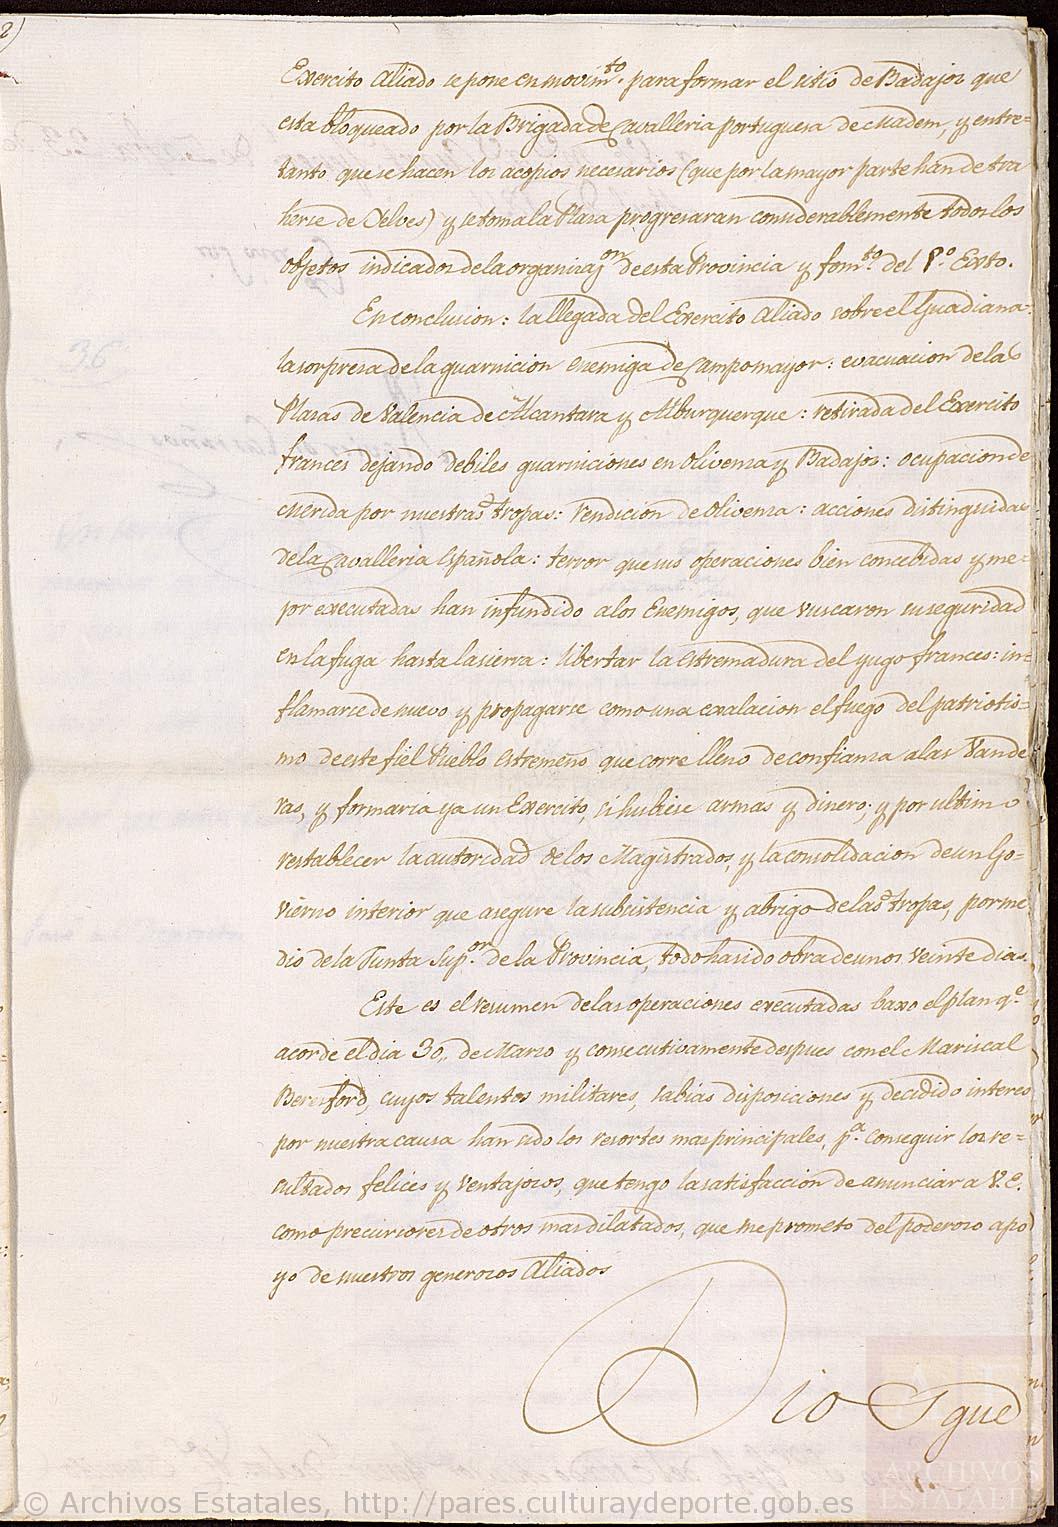 2)
Exercito Aliado se pone en movim.to para formar el sitio de Badajoz que
esta bloqueado por la Brigada de Cavalleria Portuguesa de Madem, y entre=
tanto que se hacen los acopios necesarios (que por la mayor parte han de tra
herse de Elves) y se toma la Plaza progresaran considerablemente todos los
objetos indicados de la organizaz.on de esta Provincia y fom.to del 5.º Exto.
En conclusion: la llegada del Exercito Aliado sobre el Guadiana:
la sorpresa de la guarnicion enemiga de Campomayor: evacuacion de las
Plazas de Valencia de Alcantara y Alburquerque: retirada del Exercito
frances dejando debiles guarniciones en Olivenza y Badajoz: ocupacion de
Merida por nuestras tropas: rendicion de Olivenza: acciones distinguidas
de la Cavalleria Española: terror que sus operaciones bien concebidas y me=
jor executadas han infundido a los Enemigos, que vuscaron su seguridad
en la fuga hasta la sierra: libertar la Estremadura del yugo frances: in=
flamarse de nuevo y propagarse como una exalacion el fuego del patriotis=
mo de este fiel Pueblo Estremeño que corre lleno de confianza a las Vande
ras, y formaria ya un Exercito, si hubiese armas y dinero; y por ultimo
restablecer la autoridad de los Magistrados, y la consolidacion de un Go=
vierno interior que asegure la subsistencia y abrigo de las tropas, por me
dio de la Junta Sup.or de la Provincia, todo ha sido obra de unos veinte dias.
Este es el resumen de las operaciones executadas baxo el plan q.e
acorde el dia 30,, de Marzo y consecutivamente despues con el Mariscal
Beresford, cuyos talentos militares, sabias disposiciones y decidido interes
por nuestra causa han sido los resortes mas principales, p.a conseguir los re=
sultados felices y ventajosos, que tengo la satisfaccion de anunciar a V.E.
como precursores de otros mas dilatados, que me prometo del poderoso apo
yo de nuestros generosos Aliados
Dios gue
ARCHIVOS
ESTATALES
© Archivos Estatales, http://pares.culturaydeporte.gob.es